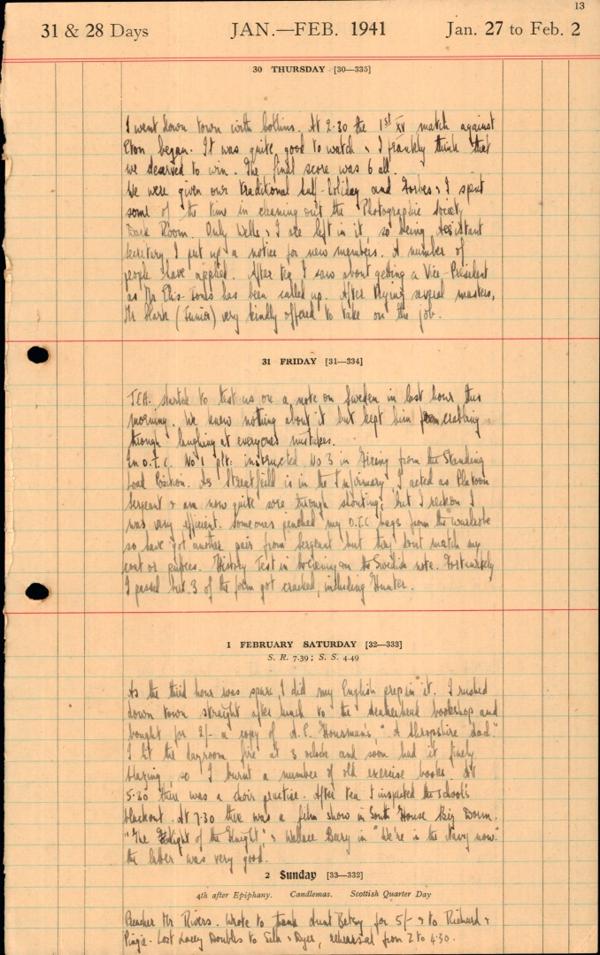 13
31 & 28 Days JAN.—FEB. 1941 Jan. 27 to Feb. 2
30 THURSDAY [30—335]
I went down town with Collins. At 2.30 the 1st XV match against
Eton began. It was quite good to watch & I frankly think that
we deserved to win. The final score was 6 all.
We were given our traditional half-holiday and Forbes & I spent
some of the time in cleaning out the Photographic Society
Dark Room. Only Wells & I are left in it, so being Assistant
Secretary, I put up a notice for new members. A number of
people have applied. After tea I saw about getting a Vice-President
as Mr has been called up. After trying several masters,
Mr (Junior) very kindly offered to take on the job.
31 FRIDAY [31—334]
started to test us on a note on Sweden in last hour this
morning. We knew nothing about it but kept him from
through laughing at everyones mistakes.
In O.T.C. No 1 plt: instructed No 3 in Firing from the Standing
Load Position. As Streatfeild is in the Infirmary I acted as Platoon
Sergeant & am now quite sore through shouting; but I reckon I
was very efficient. Someones pinched my O.T.C bags from the wardrobe
so have got another pair from Sergeant but they dont match my
coat or puttees. History Test in on the Swedish note. Fortunately
I passed but 3 of the form got cracked, including Hunter.
1 FEBRUARY SATURDAY [32—333]
S. R. 7.39; S. S. 4.49
As the third hour was spare I did my English prep in it. I rushed
down town straight after lunch to the bookshop and
bought for 2/- a copy of A.E. Housman's "A Shropshire Lad."
I lit the dayroom fire at 3 oclock and soon had it finely
blazing, so I burnt a number of old exercise books. At
5.30 there was a choir practise. After tea I inspected the school's
blackout. At 7.30 there was a film show in South House Big Dorm.
"The of the " & Wallace Beery in "We're in the Navy now."
the latter was very good.
2 Sunday [33—332]
4th after Epiphany. Candlemas. Scottish Quarter Day
Preacher Mr Rivers. Wrote to thank Aunt Betsy for 5/- & to Richard &
Lost Doubles to & Dyer, rehearsal from 2 to 4.30.